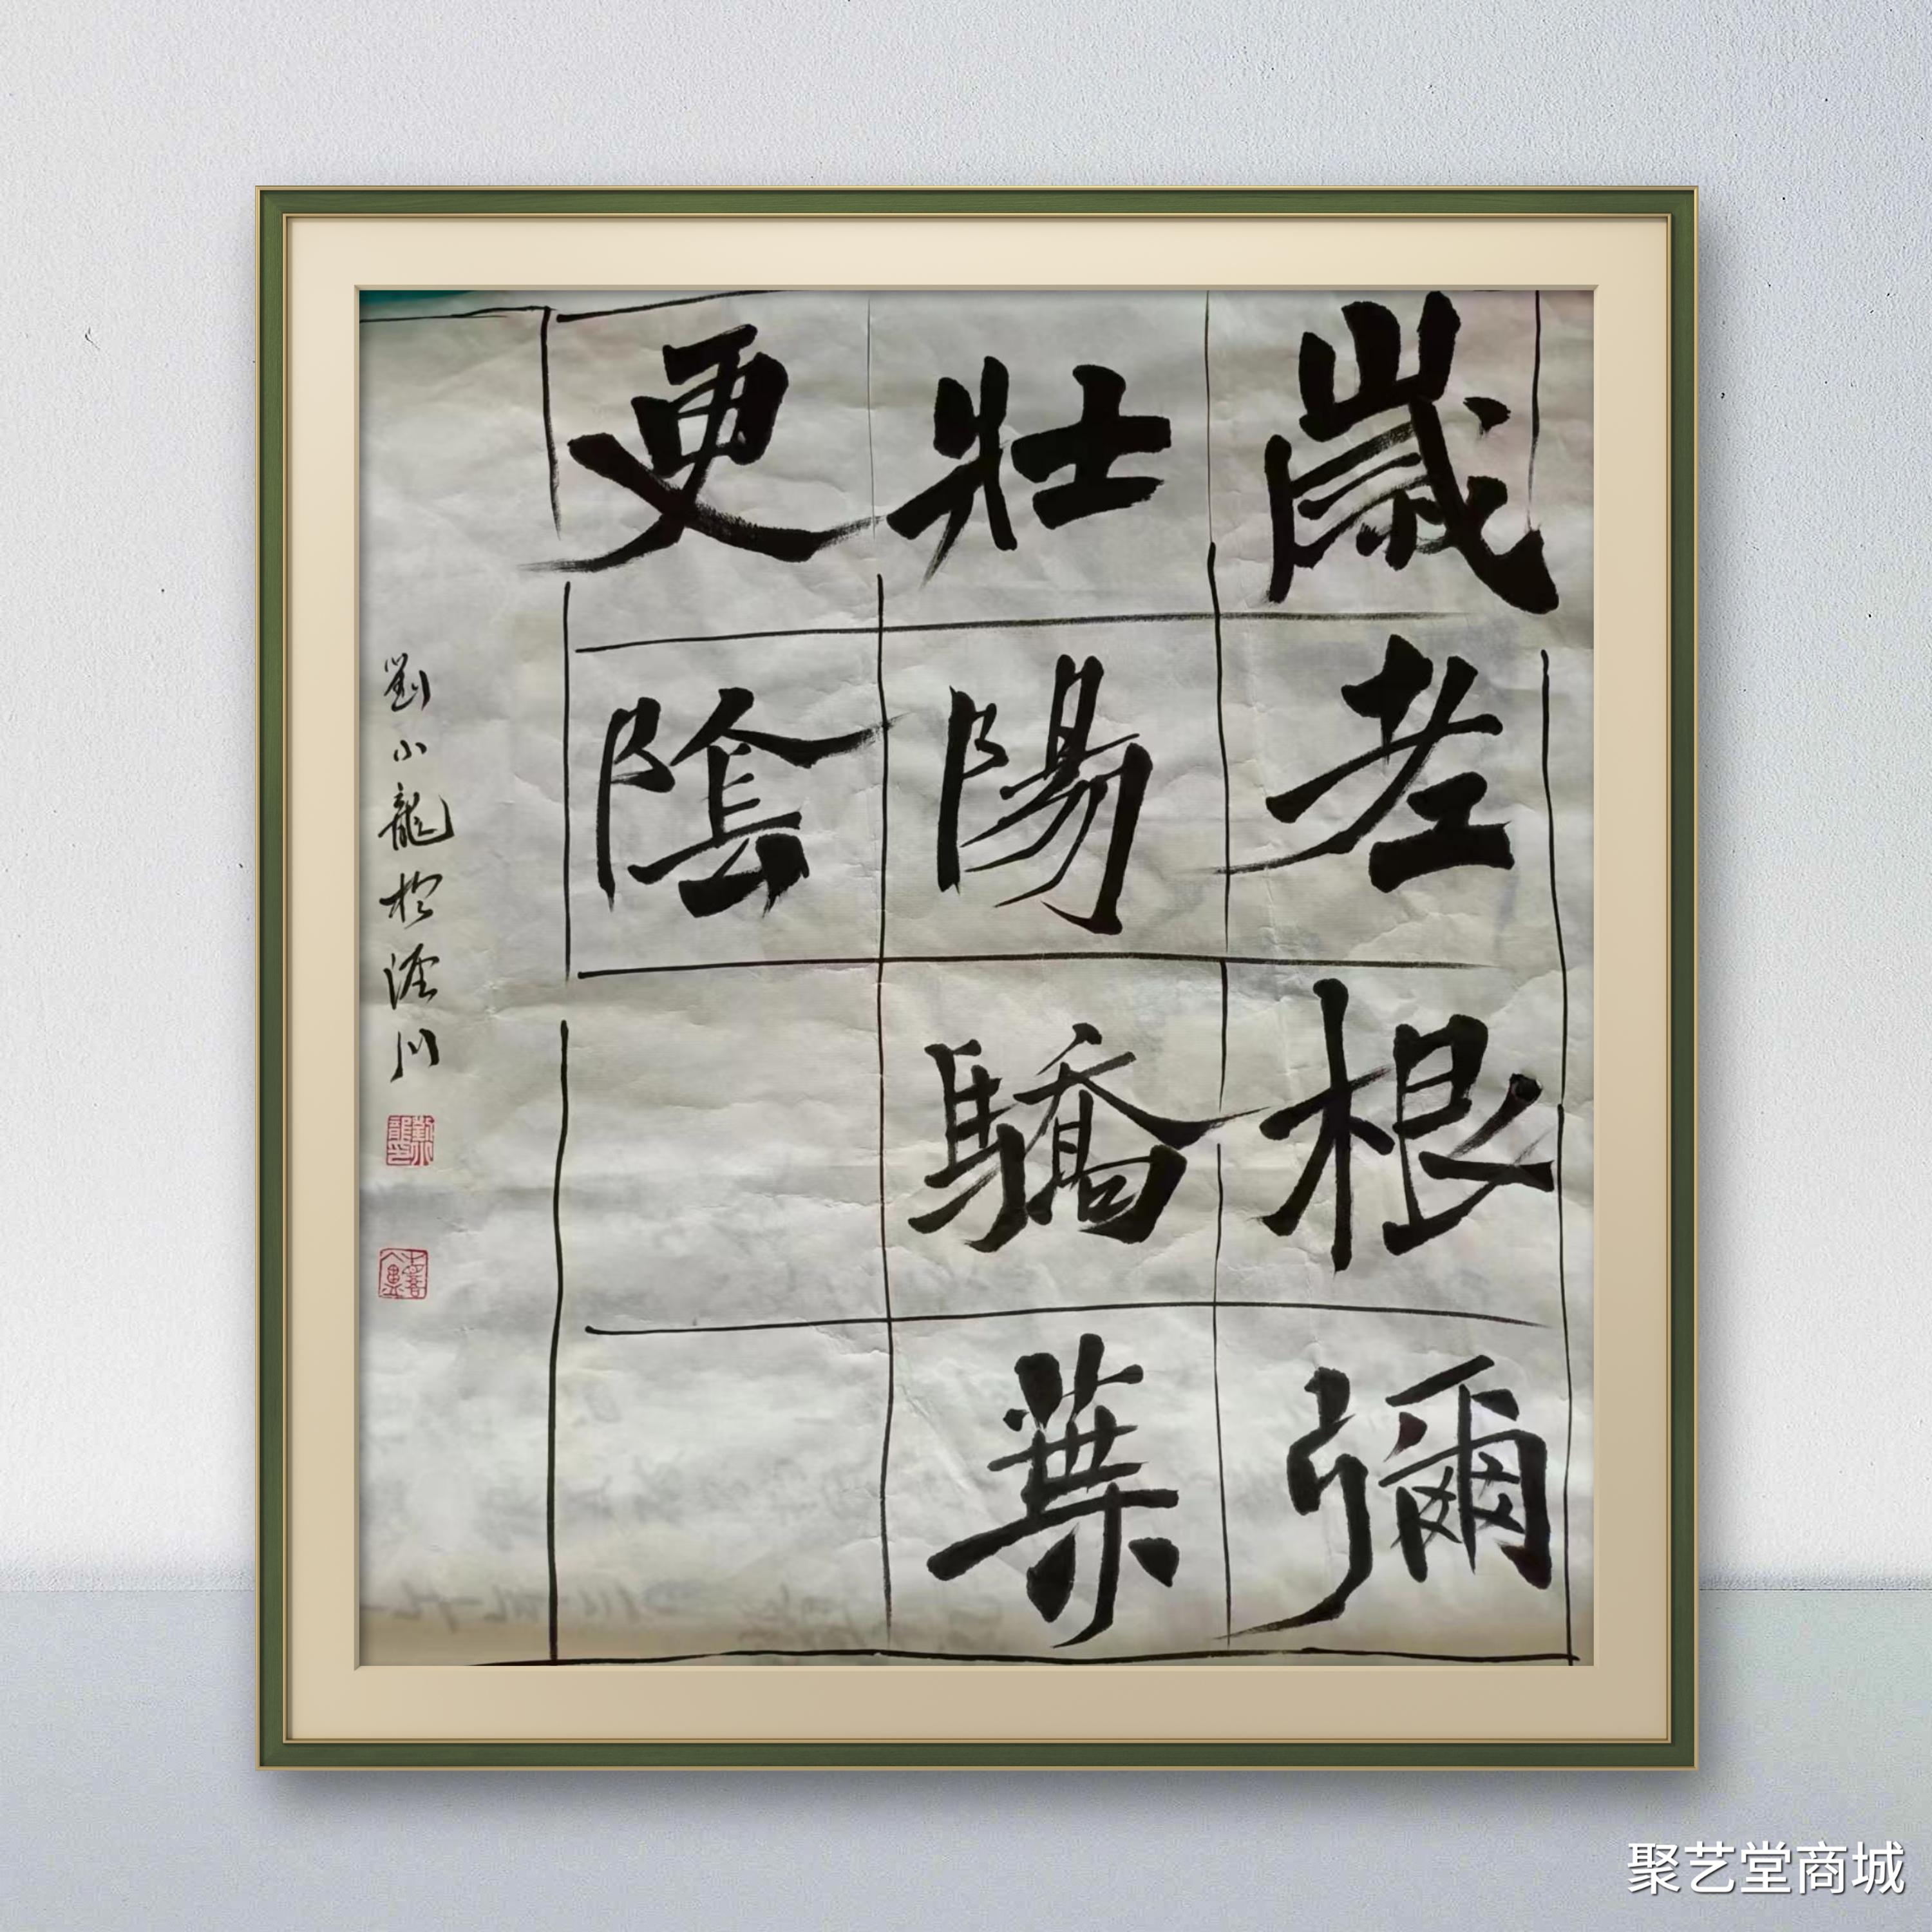 歲老根彌
壯陽驕葉
更陰
劉小龍於涇川
聚艺堂商城